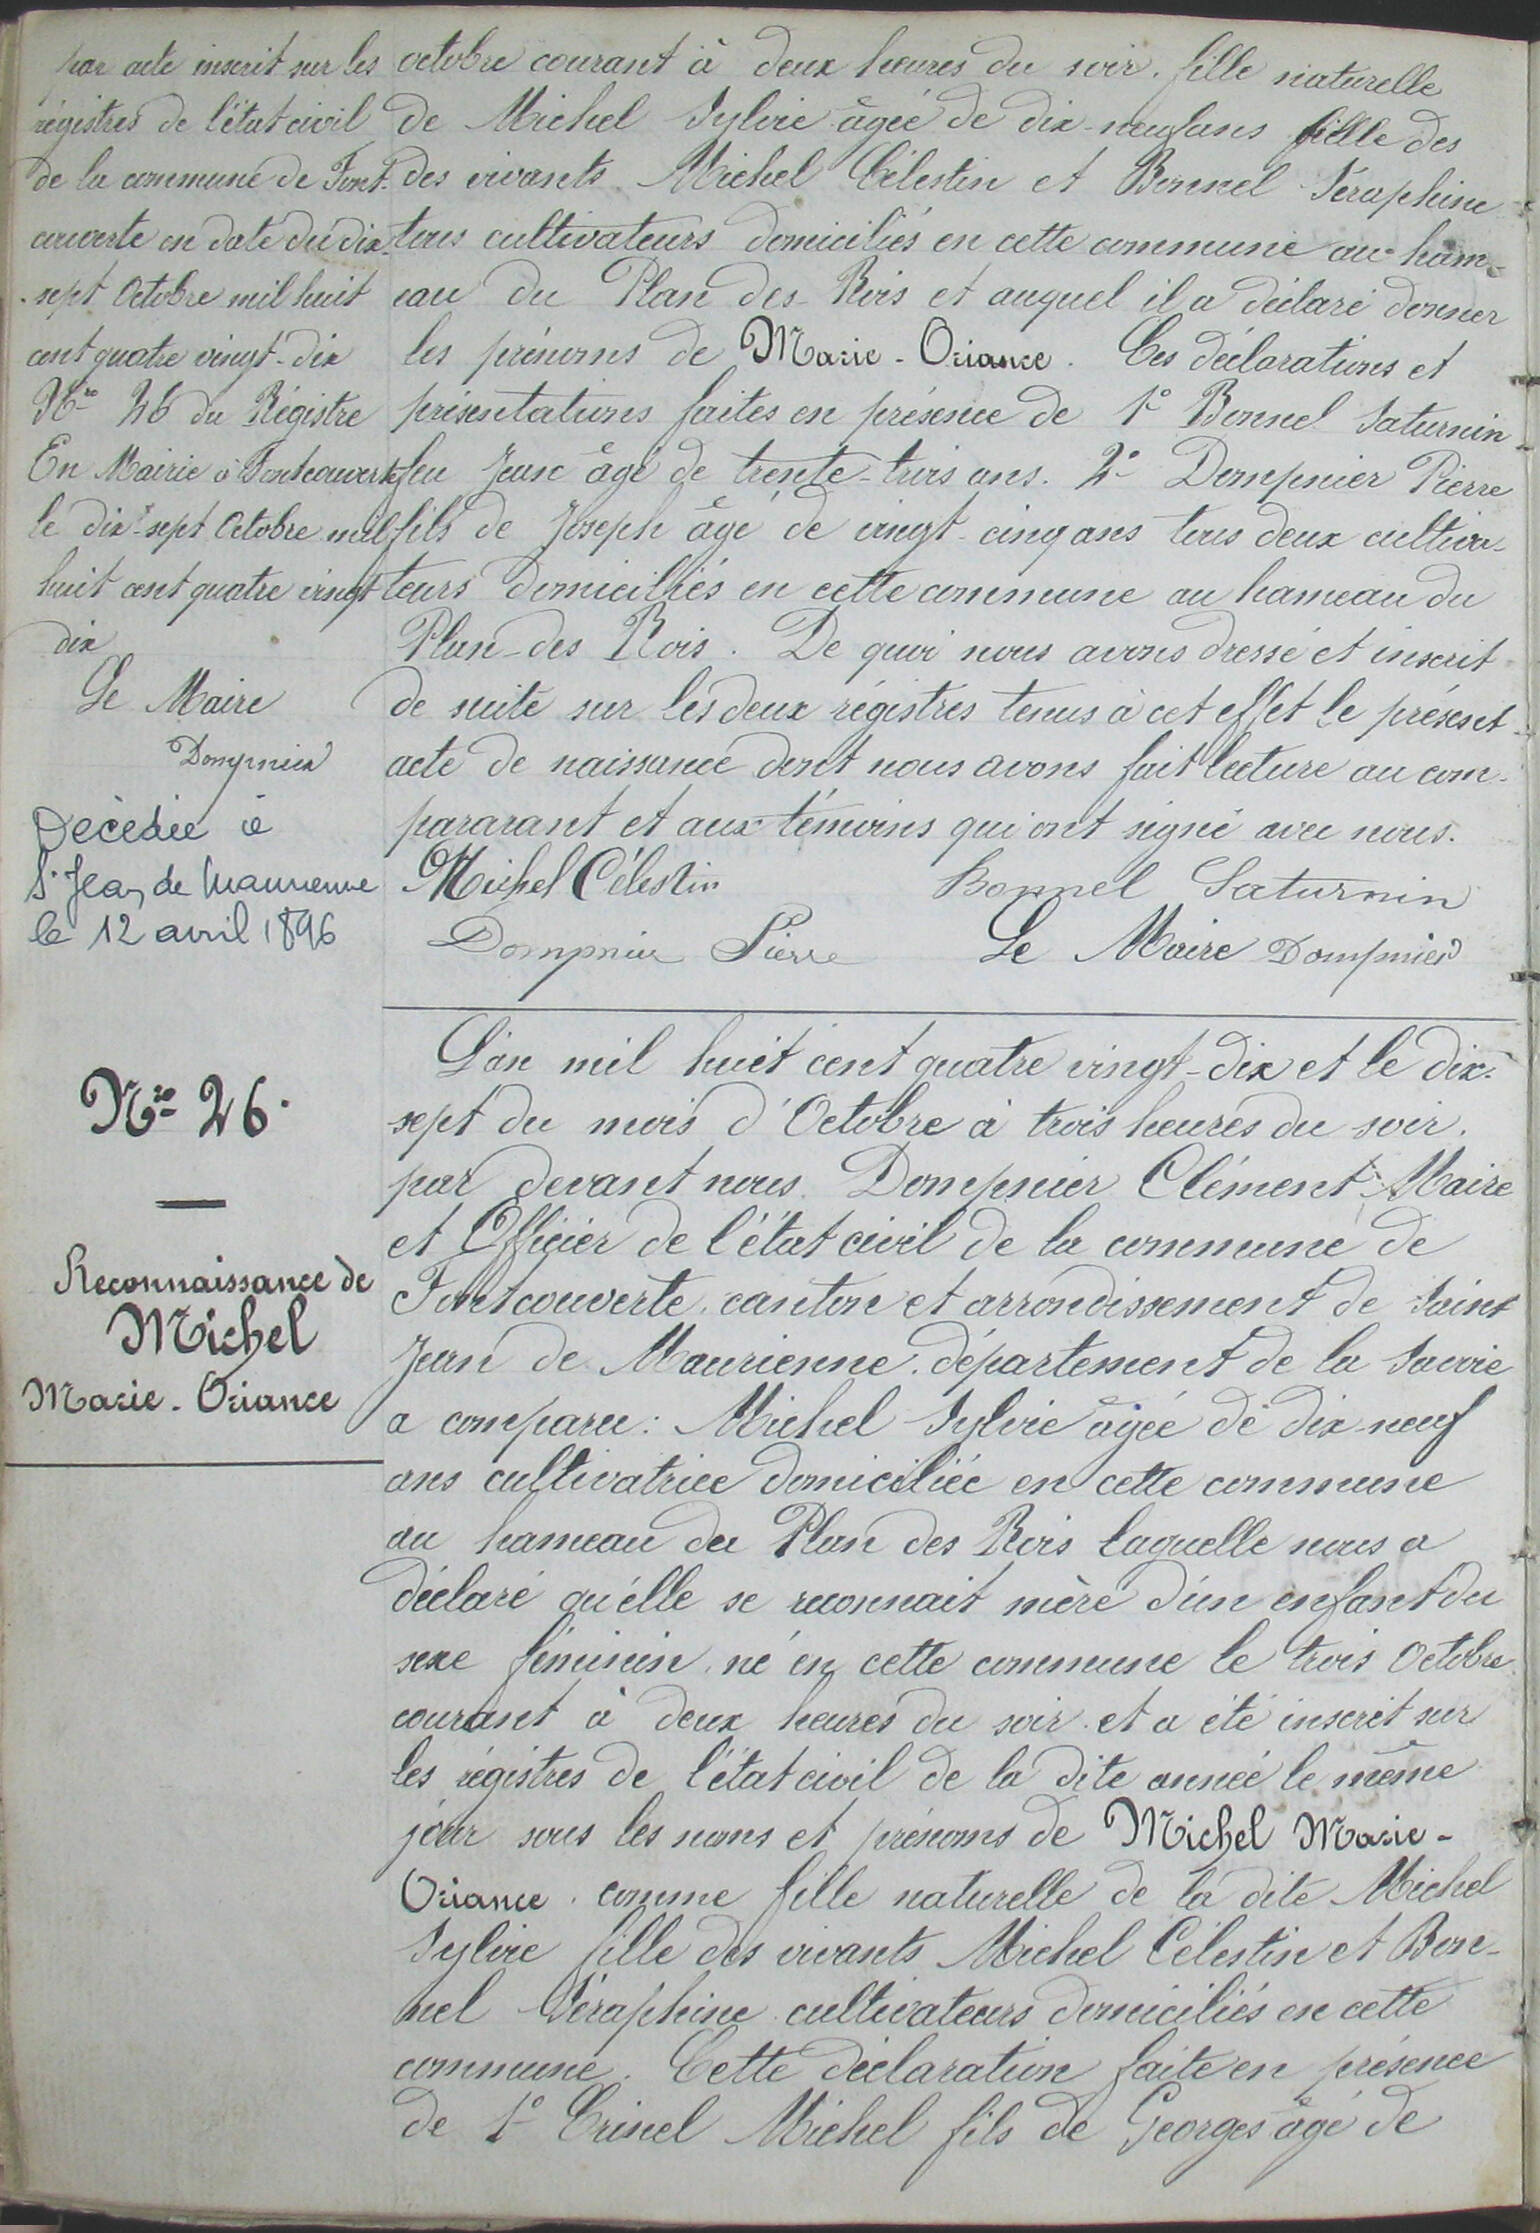 par acte inscrit sur les
régistres de l'état civil
de la commune de Font-
couverte en date du dix-
sept Octobre mil huit
cent quatre vingt-dix
Nro 26 du Régistre
En Mairie à Fontcouverte
le dix-sept Octobre mil
huit cent quatre vingt
dix
Le Maire
Dompnier
Décédée à
St Jean de Maurienne
le 12 avril 1896
octobre courant à deux heures du soir. fille naturelle
de Michel Sylvie âgée de dix-neuf ans fille des
des vivants Michel Célestin et Bonnel Séraphine
tous cultivateurs domiciliés en cette commune au ham-
eau du Plan des Rois et auquel il a déclaré donner
les prénoms de Marie-Oriance. Ces déclarations et
présentations faites en présence de 1° Bonnel Saturnin
feu Jean âgé de trente-trois ans. 2° Dompnier Pierre
fils de Joseph âgé de vingt-cinq ans tous deux cultiva-
teurs domiciliés en cette commune au hameau du
Plan-des Rois. De quoi nous avons dressé et inscrit
de suite sur les deux régistres tenus à cet effet le présent
acte de naissance dont nous avons fait lecture au com-
pararant et aux témoins qui ont signé avec nous.
Michel Célestin Bonnel Saturnin
Dompnier Pierre Le Maire Dompnier
Nro 26.
Reconnaissance de
Michel
Marie-Oriance
L'an mil huit cent quatre vingt-dix et le dix-
sept du mois d'Octobre à trois heures du soir.
par devant nous Dompnier Clément Maire
et Officier de l'état civil de la commune de
Fontcouverte, canton et arrondissement de Saint
Jean de Maurienne, département de la Savoie
a comparu: Michel Sylvie âgée de dix-neuf
ans cultivatrice domiciliée en cette commune
au hameau du Plan des Rois laquelle nous a
déclaré qu'elle se reconnait mère d'un enfant du
sexe féminin, né en cette commune le trois Octobre
courant à deux heures du soir et a été inscrit sur
les régistres de l'état civil de la dite année le même
jour sous les noms et prénoms de Michel Marie-
Oriance, comme fille naturelle de la dite Michel
Sylvie fille des vivants Michel Célestin et Bon-
nel Séraphine cultivateurs domiciliés en cette
commune. Cette déclaration faite en présence
de 1° Crinel Michel fils de Georges âgé de